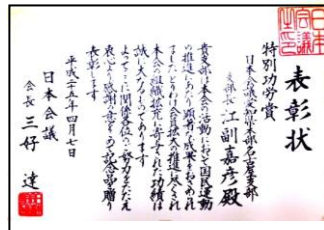 表彰状
特別功労賞
日本会議愛知県本部名古屋支部
支部長 江副嘉彦殿
貴支部は本会の活動において国民運動
の推進にあたり顕著な成果をおさめられ
ましたとりわけ会員拡大の推進に尽くされ
本会の組織拡充に寄与された功績は
誠に大なるものであります
よってここに関係各位のご努力をたたえ
衷心より感謝の意をこめ記念品を贈り
表彰します
平成二十五年四月七日
日本会議
会長 三好 達